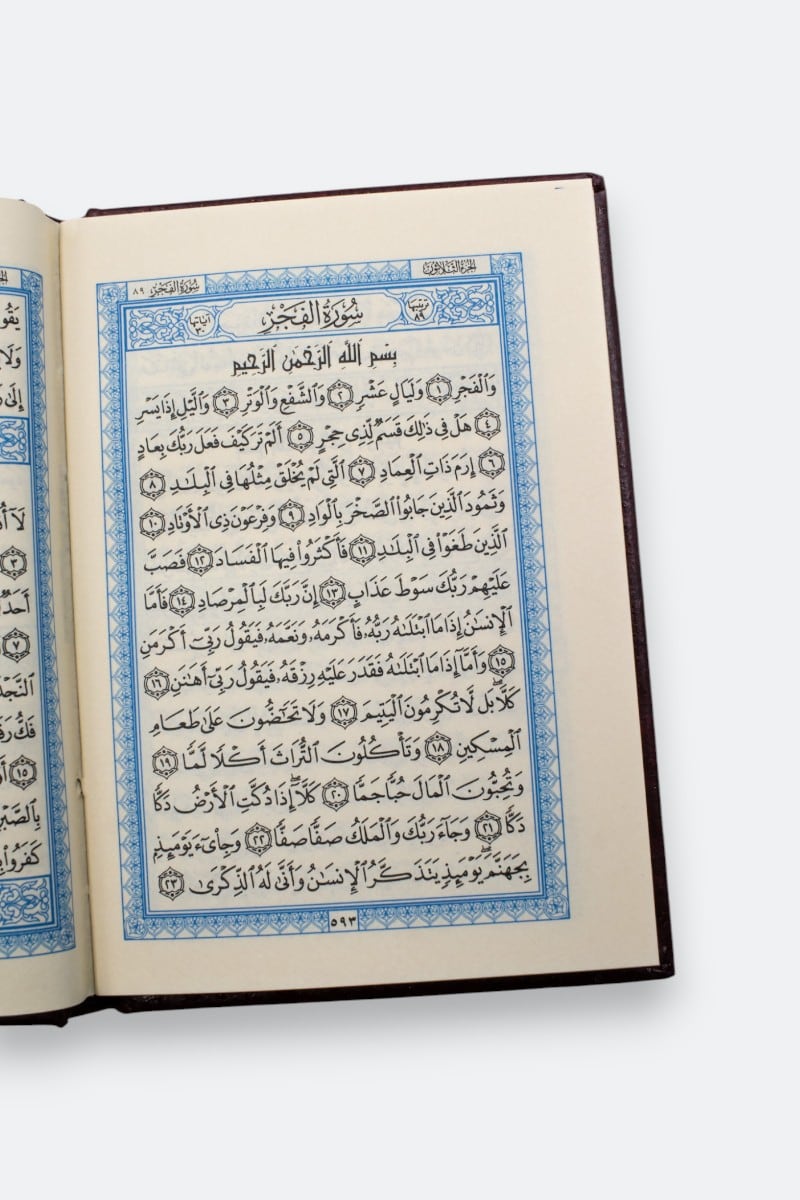 الجزء الثلاثون
سورة الفجر ٨٩
ترتيبها ٨٩
سُورَةُ الفَجْرِ
آياتها ٣٠
بِسْمِ اللَّهِ الرَّحْمَٰنِ الرَّحِيمِ
وَالْفَجْرِ ١ وَلَيَالٍ عَشْرٍ ٢ وَالشَّفْعِ وَالْوَتْرِ ٣ وَاللَّيْلِ إِذَا يَسْرِ
٤ هَلْ فِي ذَٰلِكَ قَسَمٌ لِّذِي حِجْرٍ ٥ أَلَمْ تَرَ كَيْفَ فَعَلَ رَبُّكَ بِعَادٍ
٦ إِرَمَ ذَاتِ الْعِمَادِ ٧ الَّتِي لَمْ يُخْلَقْ مِثْلُهَا فِي الْبِلَٰدِ ٨
وَثَمُودَ الَّذِينَ جَابُوا الصَّخْرَ بِالْوَادِ ٩ وَفِرْعَوْنَ ذِي الْأَوْتَادِ ١٠
الَّذِينَ طَغَوْا فِي الْبِلَٰدِ ١١ فَأَكْثَرُوا فِيهَا الْفَسَادَ ١٢ فَصَبَّ
عَلَيْهِمْ رَبُّكَ سَوْطَ عَذَابٍ ١٣ إِنَّ رَبَّكَ لَبِالْمِرْصَادِ ١٤ فَأَمَّا
الْإِنسَٰنُ إِذَا مَا ابْتَلَىٰهُ رَبُّهُ فَأَكْرَمَهُ وَنَعَّمَهُ فَيَقُولُ رَبِّي أَكْرَمَنِ
١٥ وَأَمَّا إِذَا مَا ابْتَلَىٰهُ فَقَدَرَ عَلَيْهِ رِزْقَهُ فَيَقُولُ رَبِّي أَهَٰنَنِ ١٦
كَلَّا بَل لَّا تُكْرِمُونَ الْيَتِيمَ ١٧ وَلَا تَحَٰضُّونَ عَلَىٰ طَعَامِ
الْمِسْكِينِ ١٨ وَتَأْكُلُونَ التُّرَاثَ أَكْلًا لَّمًّا ١٩
وَتُحِبُّونَ الْمَالَ حُبًّا جَمًّا ٢٠ كَلَّا إِذَا دُكَّتِ الْأَرْضُ دَكًّا
دَكًّا ٢١ وَجَاءَ رَبُّكَ وَالْمَلَكُ صَفًّا صَفًّا ٢٢ وَجِايءَ يَوْمَئِذٍ
بِجَهَنَّمَ يَوْمَئِذٍ يَتَذَكَّرُ الْإِنسَٰنُ وَأَنَّىٰ لَهُ الذِّكْرَىٰ ٢٣
٥٩٣